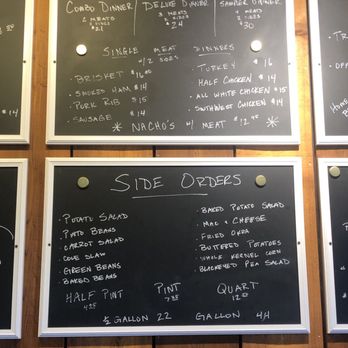 COMBO DINNER
2 MEATS
2 SIDES
$21
DELUXE DINNER
3 MEATS
2 SIDES
$24
SAMPLER DINNER
2 SIDES
$30
SINGLE MEAT DINNERS
W/ 2 SIDES
• BRISKET $16.00
• SMOKED HAM $14
• PORK RIB $15
• SAUSAGE $14
• TURKEY $16
• HALF CHICKEN $14
• ALL WHITE CHICKEN $15
• SOUTHWEST CHICKEN $14
* NACHO'S W/ MEAT $12.00 *
$14
SIDE ORDERS
• POTATO SALAD
• PINTO BEANS
• CARROT SALAD
• COLE SLAW
• GREEN BEANS
• BAKED BEANS
• BAKED POTATO SALAD
• MAC & CHEESE
• FRIED OKRA
• BUTTERED POTATOES
• WHOLE KERNEL CORN
• BLACKEYED PEA SALAD
HALF PINT
PINT
QUART
½ GALLON 22
GALLON 44